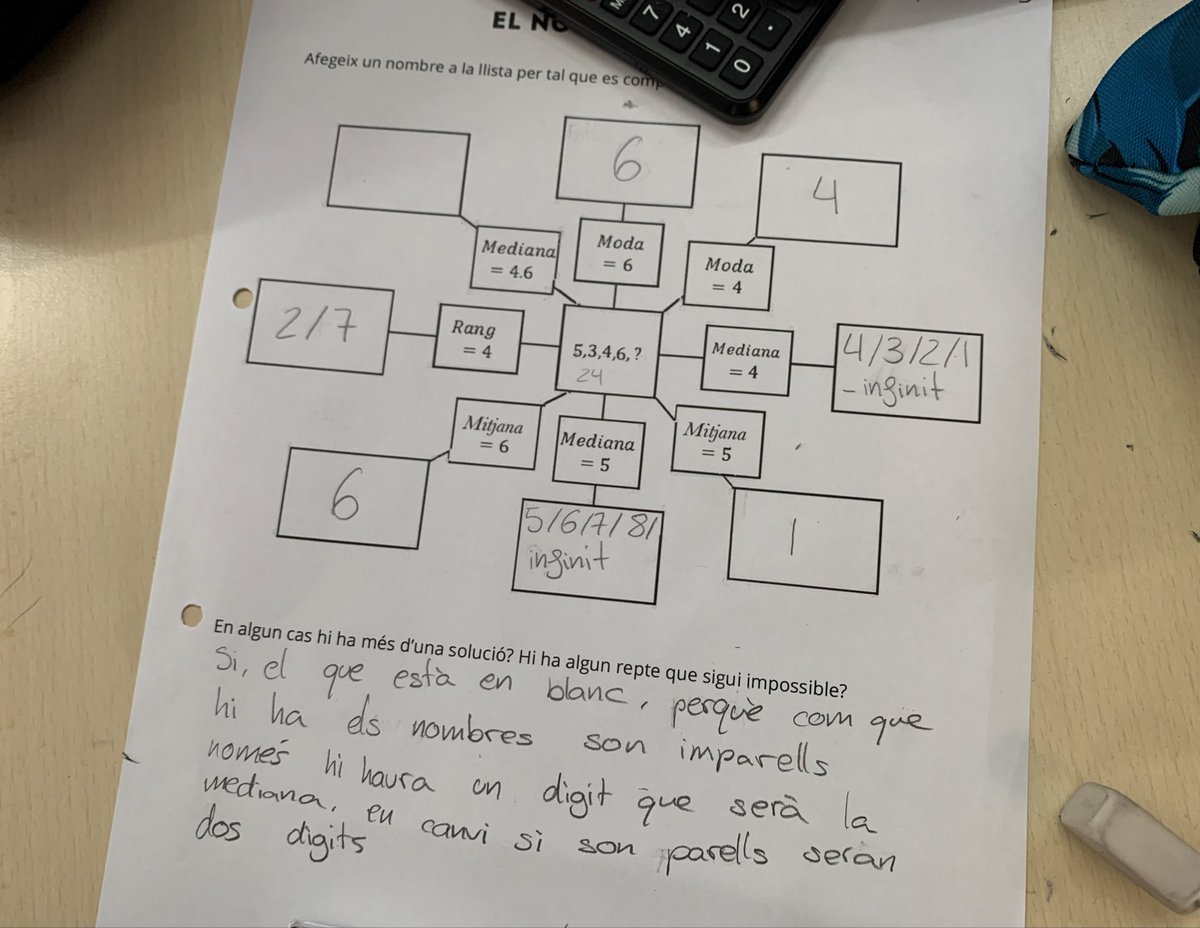 EL
Afegeix un nombre a la llista per tal que es comp
6
4
Mediana
= 4.6
Moda
= 6
Moda
= 4
2/7
Rang
= 4
5,3,4,6,?
24
Mediana
= 4
4/3/2/1
- inginit
Mitjana
= 6
Mediana
= 5
Mitjana
= 5
6
5/6/7/8/
inginit
1
En algun cas hi ha més d'una solució? Hi ha algun repte que sigui impossible?
Si, el que està en blanc, perquè com que
hi ha els nombres son imparells
només hi haura un digit que serà la
mediana, en canvi si son parells seran
dos digits
7
4
1
2
.
0